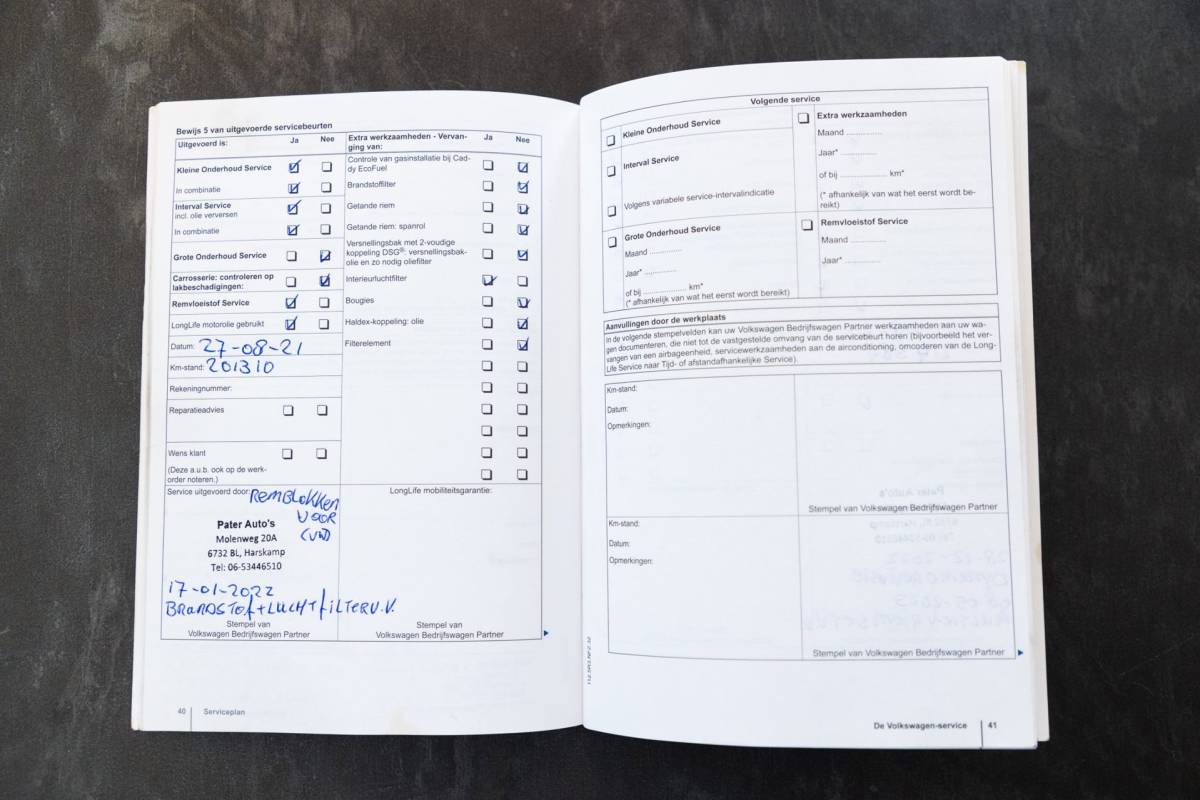 Bewijs 5 van uitgevoerde servicebeurten
Uitgevoerd is:
Ja
Nee
Kleine Onderhoud Service
In combinatie
Interval Service
incl. olie verversen
In combinatie
Grote Onderhoud Service
Carrosserie: controleren op
lakbeschadigingen:
Remvloeistof Service
LongLife motorolie gebruikt
Datum: 27-08-21
Km-stand: 201310
Rekeningnummer:
Reparatieadvies
Wens klant
(Deze a.u.b. ook op de werk-
order noteren.)
Extra werkzaamheden - Vervan-
ging van:
Ja
Nee
Controle van gasinstallatie bij Cad-
dy EcoFuel
Brandstoffilter
Getande riem
Getande riem: spanrol
Versnellingsbak met 2-voudige
koppeling DSG®: versnellingsbak-
olie en zo nodig oliefilter
Interieurluchtfilter
Bougies
Haldex-koppeling: olie
Filterelement
Service uitgevoerd door: REMBLOKKEN
VOOR
(VW)
Pater Auto's
Molenweg 20A
6732 BL, Harskamp
Tel: 06-53446510
17-01-2022
BRANDSTOf+LUCHTfiLTER V.V.
Stempel van
Volkswagen Bedrijfswagen Partner
LongLife mobiliteitsgarantie:
Stempel van
Volkswagen Bedrijfswagen Partner
40
Serviceplan
Volgende service
Kleine Onderhoud Service
Interval Service
Volgens variabele service-intervalindicatie
Grote Onderhoud Service
Maand ...............
Jaar* ...............
of bij .................... km*
(* afhankelijk van wat het eerst wordt bereikt)
Extra werkzaamheden
Maand ...............
Jaar* ...............
of bij .................... km*
(* afhankelijk van wat het eerst wordt be-
reikt)
Remvloeistof Service
Maand ...............
Jaar* ...............
Aanvullingen door de werkplaats
In de volgende stempelvelden kan uw Volkswagen Bedrijfswagen Partner werkzaamheden aan uw wa-
gen documenteren, die niet tot de vastgestelde omvang van de servicebeurt horen (bijvoorbeeld het ver-
vangen van een airbageenheid, servicewerkzaamheden aan de airconditioning, omcoderen van de Long-
Life Service naar Tijd- of afstandafhankelijke Service).
Km-stand:
Datum:
Opmerkingen:
Stempel van Volkswagen Bedrijfswagen Partner
Km-stand:
Datum:
Opmerkingen:
Stempel van Volkswagen Bedrijfswagen Partner
De Volkswagen-service
41